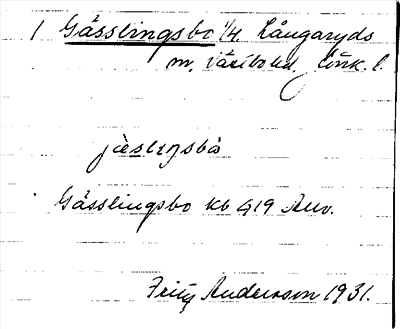 1 Gässlingsbo 1/4 Långaryds
m, Västbo hd. Jönk. l.
jèslıŋsbò
Gässlingsbo kb 919 Anv.
Fritz Andersson 1931.